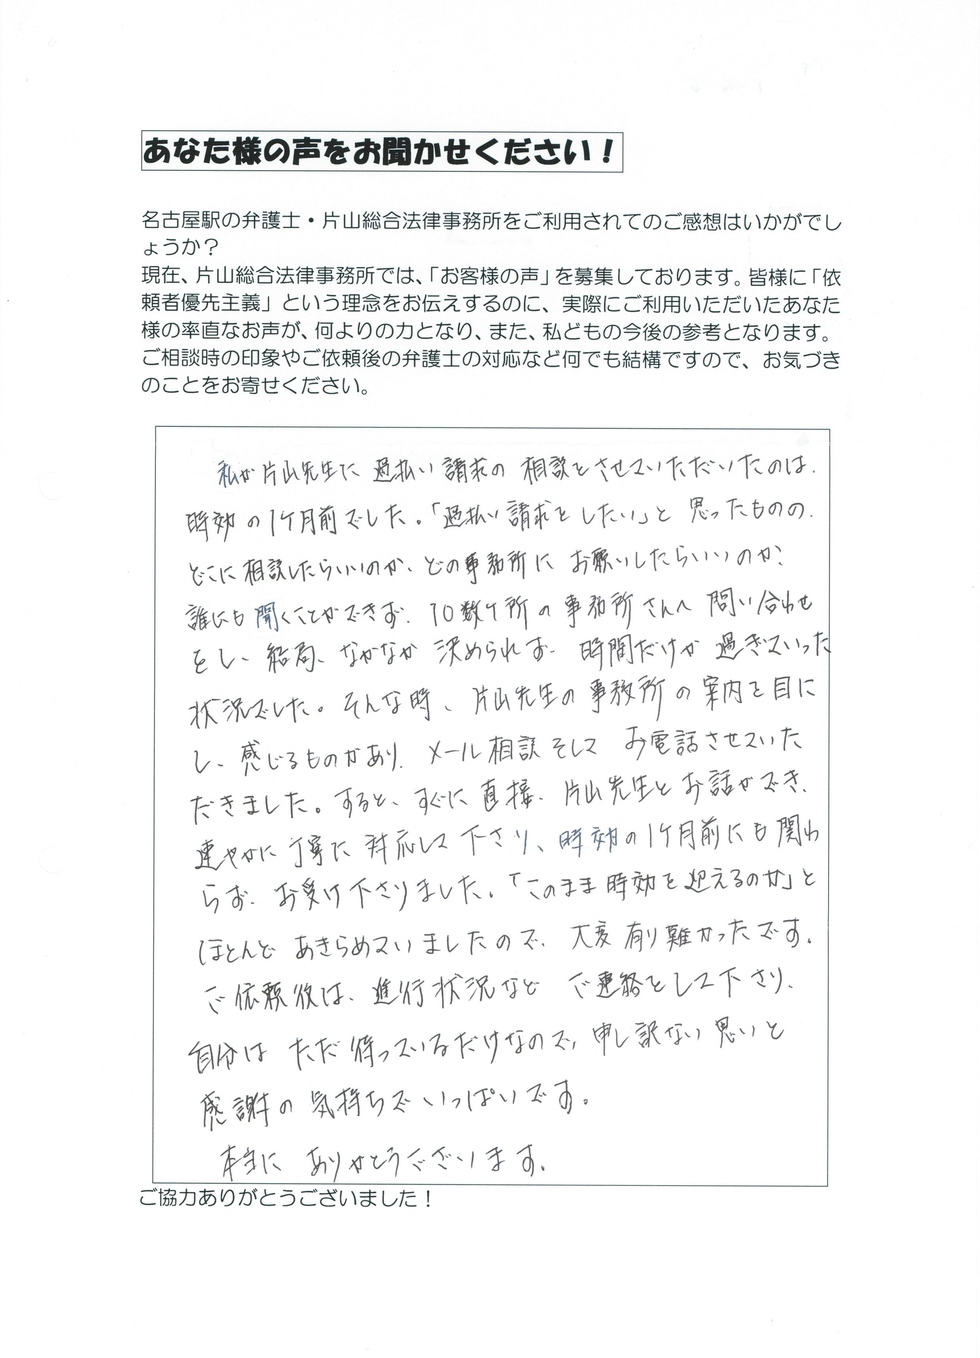 あなた様の声をお聞かせください！
名古屋駅の弁護士・片山総合法律事務所をご利用されてのご感想はいかがでし
ょうか？
現在、片山総合法律事務所では、「お客様の声」を募集しております。皆様に「依
頼者優先主義」という理念をお伝えするのに、実際にご利用いただいたあなた
様の率直なお声が、何よりの力となり、また、私どもの今後の参考となります。
ご相談時の印象やご依頼後の弁護士の対応など何でも結構ですので、お気づき
のことをお寄せください。
私が片山先生に過払い請求の相談をさせていただいたのは、
時効の1ケ月前でした。「過払い請求をしたい」と思ったものの、
どこに相談したらいいのか、どの事務所にお願いしたらいいのか、
誰にも聞くことができず、10数ケ所の事務所さんへ問い合わせ
をし、結局、なかなか決められず、時間だけが過ぎていった
状況でした。そんな時、片山先生の事務所の案内を目に
し、感じるものがあり、メール相談そしてお電話させていた
だきました。すると、すぐに直接、片山先生とお話ができ、
速やかに丁寧に対応して下さり、時効の1ケ月前にも関わ
らず、お受け下さりました。「このまま時効を迎えるのか」と
ほとんどあきらめていましたので、大変有り難かったです。
ご依頼後は、進行状況などご連絡をして下さり、
自分はただ待っているだけなので、申し訳ない思いと
感謝の気持ちでいっぱいです。
本当にありがとうございます。
ご協力ありがとうございました！